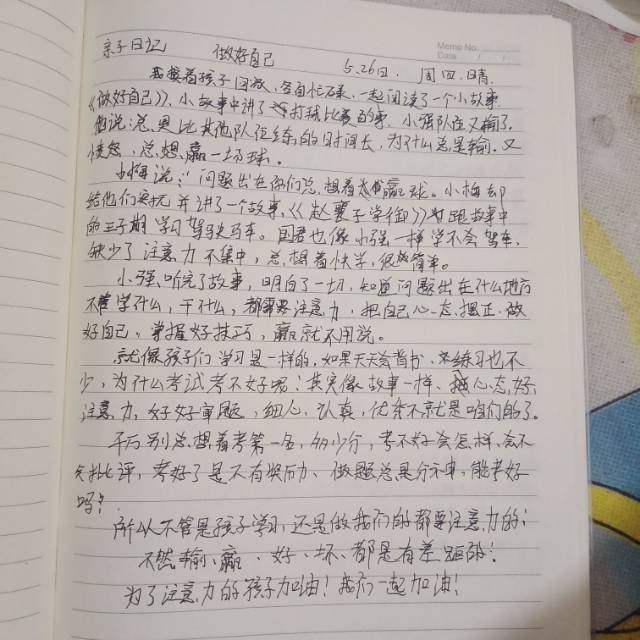 Memo No.
Date / /
亲子日记 做好自己 5.26日. 周四.晴.
我接着孩子回家,各自忙不来,一起阅读了一个小故事
《做好自己》,小故事中讲了打球比赛的事,小强队在又输了.
他说:总是比其他队伍练的时间长,为什么总是输.又
愤怒.总想赢一场球。
小梅说:"问题出在你们总想着赢球。小梅却
给他们安抚并讲了一个故事,《赵襄子学御》跟故事中
的王子期学习驾驶马车。国君也像小强一样学不会驾车,
缺少了注意力不集中,总想着快学,很简单。
小强听完了故事,明白了一切,知道问题出在什么地方
不管学什么,干什么,都需要注意力.把自己心态摆正.做
好自己,掌握好技巧,赢就不用说。
就像孩子们学习是一样的.如果天天会背书.练习也不
少,为什么考试考不好呢?其实像故事一样、心态好,
注意力,好好审题,细心,认真,优秀不就是咱们的了。
千万别总想着考第一名,多少分,考不好会怎样,会不
会批评,考好了是不有奖励、做题总是分神,能考好
吗?
所以不管是孩子学习,还是做我们的都要注意力的;
不然输、赢、好、坏、都是有差距的!
为了注意力的孩子加油!我们一起加油!